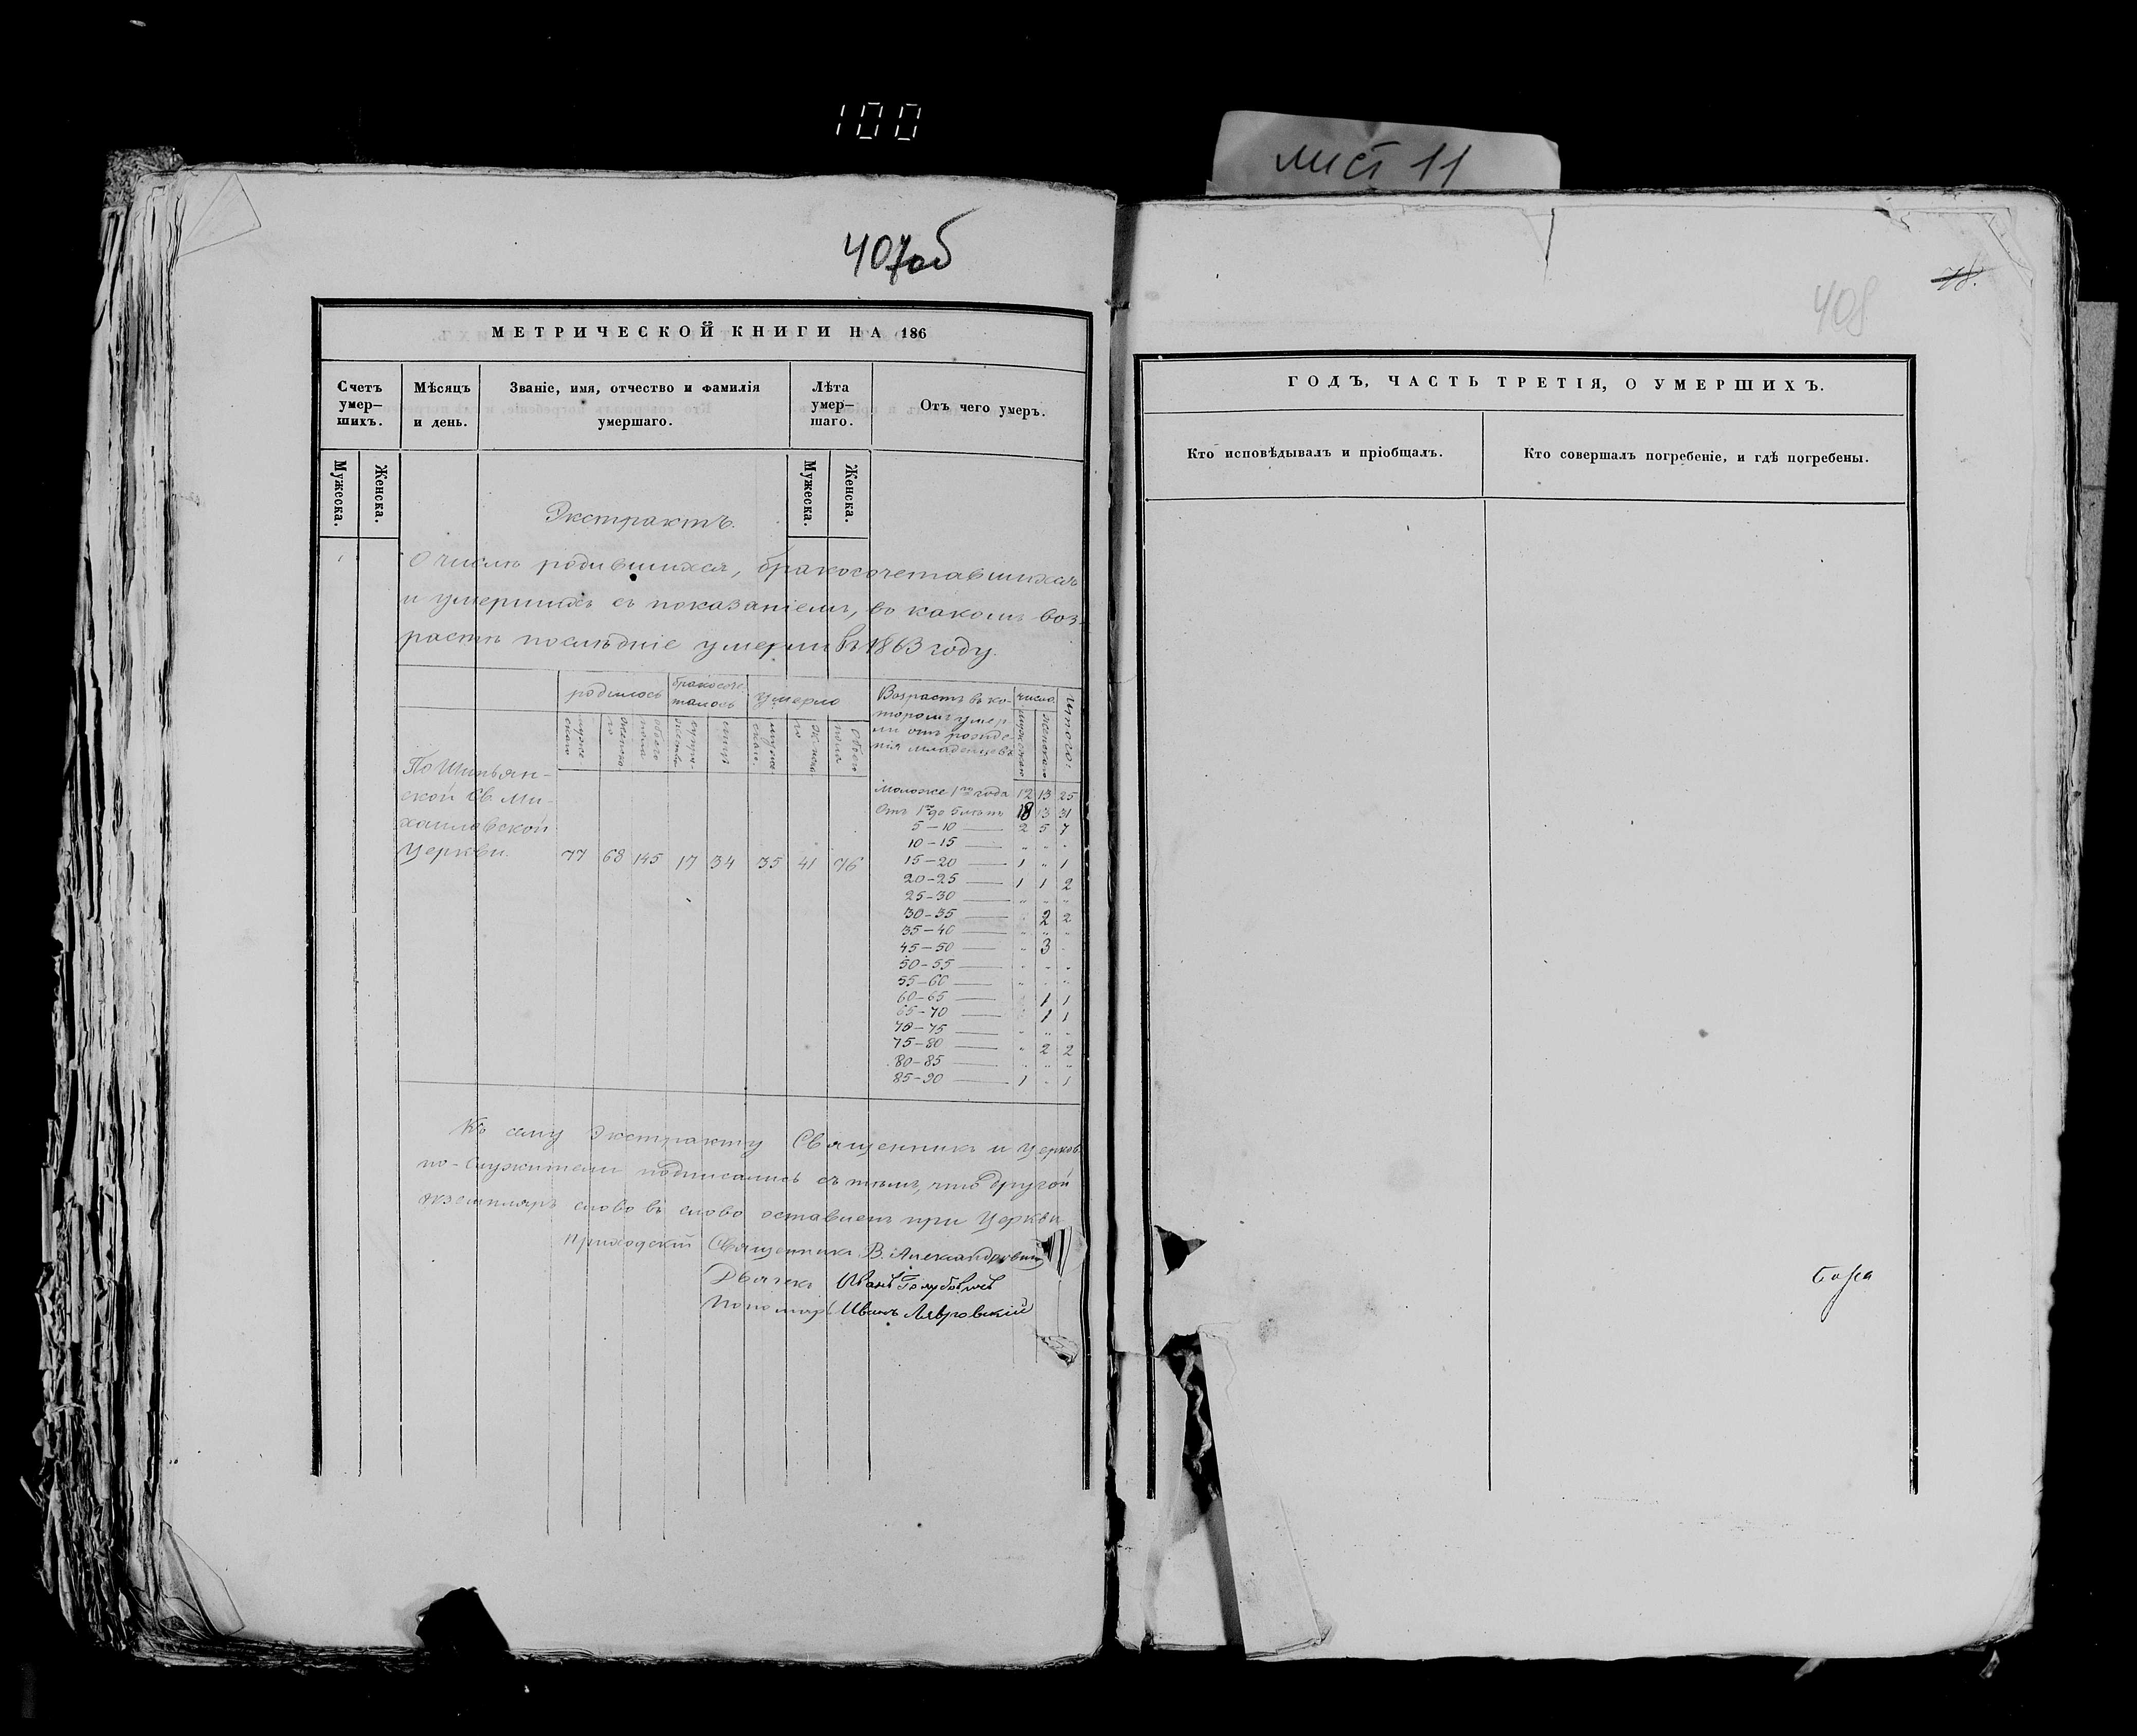 100
лист 11
407об
МЕТРИЧЕСКОЙ КНИГИ НА 186
Счетъ умер-шихъ.
Мѣсяцъ и день.
Званіе, имя, отчество и фамилія умершаго.
Лѣта умер-шаго.
Отъ чего умеръ.
Мужеска. Женска. Мужеска. Женска.
Экстрактъ.
О числѣ родившихся, бракосочетавшихся
и умершихъ съ показаніемъ, въ какомъ воз-
растѣ послѣдніе умерли въ 1863 году.
родилось бракосоче-талось умерло
Возрастъ въ ко-
торомъ умер-
ли отъ рожде-
нія младенцевъ
число
мужескаго женскаго Итого:
муже-скаго женска-го обоего пола
муже-скаго обоего пола
По Шипьян-
ской Св. Ми-
хаиловской
Церкви. 77 68 145 17 34 35 41 76
моложе 1го года 12 13 25
Отъ 1го до 5 лѣтъ 18 13 31
5–10 — 2 5 7
10–15 — „ „ „
15–20 — 1 „ 1
20–25 — 1 1 2
25–30 — „ „ „
30–35 — „ 2 2
35–40 — „ „ „
45–50 — „ 3 „
50–55 — „ „ „
55–60 — „ „ „
60–65 — „ 1 1
65–70 — „ 1 1
70–75 — „ „ „
75–80 — „ 2 2
80–85 — „ „ „
85–90 — 1 „ 1
Къ сему Экстракту Священникъ и церков-
но-служители подписались съ тѣмъ, что другой
экземпляръ слово въ слово оставленъ при Церкви
приходскій Священникъ В. Александровичъ
Дьячекъ Иванъ Голубовичъ
Пономарь Иванъ Лавровскій
408
ГОДЪ, ЧАСТЬ ТРЕТІЯ, О УМЕРШИХЪ.
Кто исповѣдывалъ и пріобщалъ.
Кто совершалъ погребеніе, и гдѣ погребены.